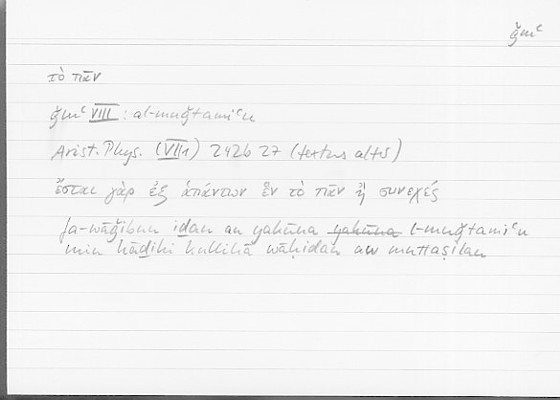 ǧmʿ
τὸ πᾶν
ǧmʿ VIII : al-muǧtamiʿu
Arist. Phys. (VII 1) 242b 27 (textus alter)
ἔσται γὰρ ἐξ ἁπάντων ἓν τὸ πᾶν ἢ συνεχές
fa-wāǧibun iḏan an yakūna yakūna l-muǧtamiʿu
min hāḏihi kullihā wāḥidan aw muttaṣilan